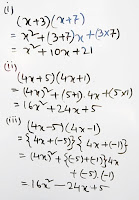 (i)
(x+3)(x+7)
= x²+(3+7)x+(3×7)
= x²+10x+21
(ii)
(4x+5)(4x+1)
= (4x)²+(5+1).4x+(5×1)
= 16x²+24x+5
(iii)
(4x-5)(4x-1)
= {4x+(-5)}{4x+(-1)}
= (4x)²+{(-5)+(-1)}4x
+(-5).(-1)
= 16x²-24x+5